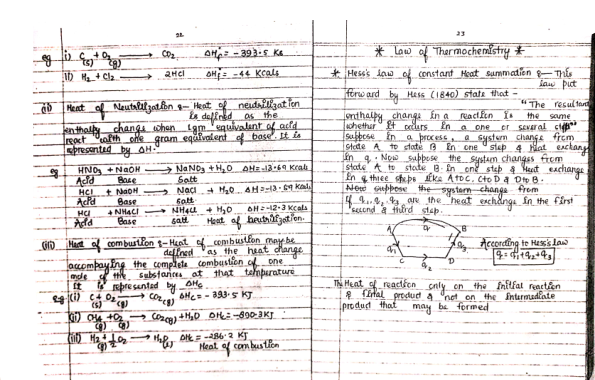 22
eg i) C(s) + O2(g) → CO2 ΔHf = -393.5 KJ
ii) H2 + Cl2 → 2HCl ΔHf = -44 Kcals
(ii) Heat of Neutralization :- Heat of neutralization
is defined as the
enthalpy changes when 1gm equivalent of acid
react with one gram equivalent of base. It is
represented by ΔH.
eg HNO3 + NaOH → NaNO3 + H2O ΔH = -13.69 Kcals
Acid Base Salt
HCl + NaOH → NaCl + H2O ΔH = -13.69 Kcals
Acid Base Salt
HCl + NH4Cl → NH4Cl + H2O ΔH = -12.3 Kcals
Acid Base Salt Heat of neutralization.
(iii) Heat of combustion :- Heat of combustion may be
defined as the heat change
accompanying the complete combustion of one
mole of the substances at that temperature
It is represented by ΔHc
eg (i) C(s) + O2(g) → CO2(g) ΔHc = -393.5 KJ
(ii) CH4(g) + O2(g) → CO2(g) + H2O ΔHc = -890.3KJ
(iii) H2(g) + 1/2 O2 → H2O(l) ΔHc = -286.2 KJ
Heat of combustion
23
* Law of Thermochemistry *
* Hess's law of constant Heat summation :- This
law put
forward by Hess (1840) state that -
"The resultant
enthalpy change in a reaction is the same
whether it occurs in a one or several steps"
Suppose in a process, a system change from
state A to state B in one step & Heat exchange
in q. Now suppose the system changes from
state A to state B in one step & Heat exchange
in q three steps like A to C, C to D & D to B.
Now suppose the system change from
If q1, q2, q3, are the heat exchange in the first
second & third step.
A B
q
q1 q3
C D
q2
According to Hess's law
q = q1 + q2 + q3
The Heat of reaction only on the initial reaction
& final product & not on the intermediate
product that may be formed